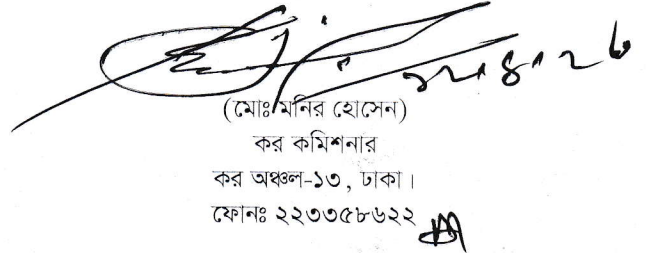 (মোঃ মনির হোসেন)
কর কমিশনার
কর অঞ্চল-১৩, ঢাকা।
ফোনঃ ২২৩৩৫৮৬২২